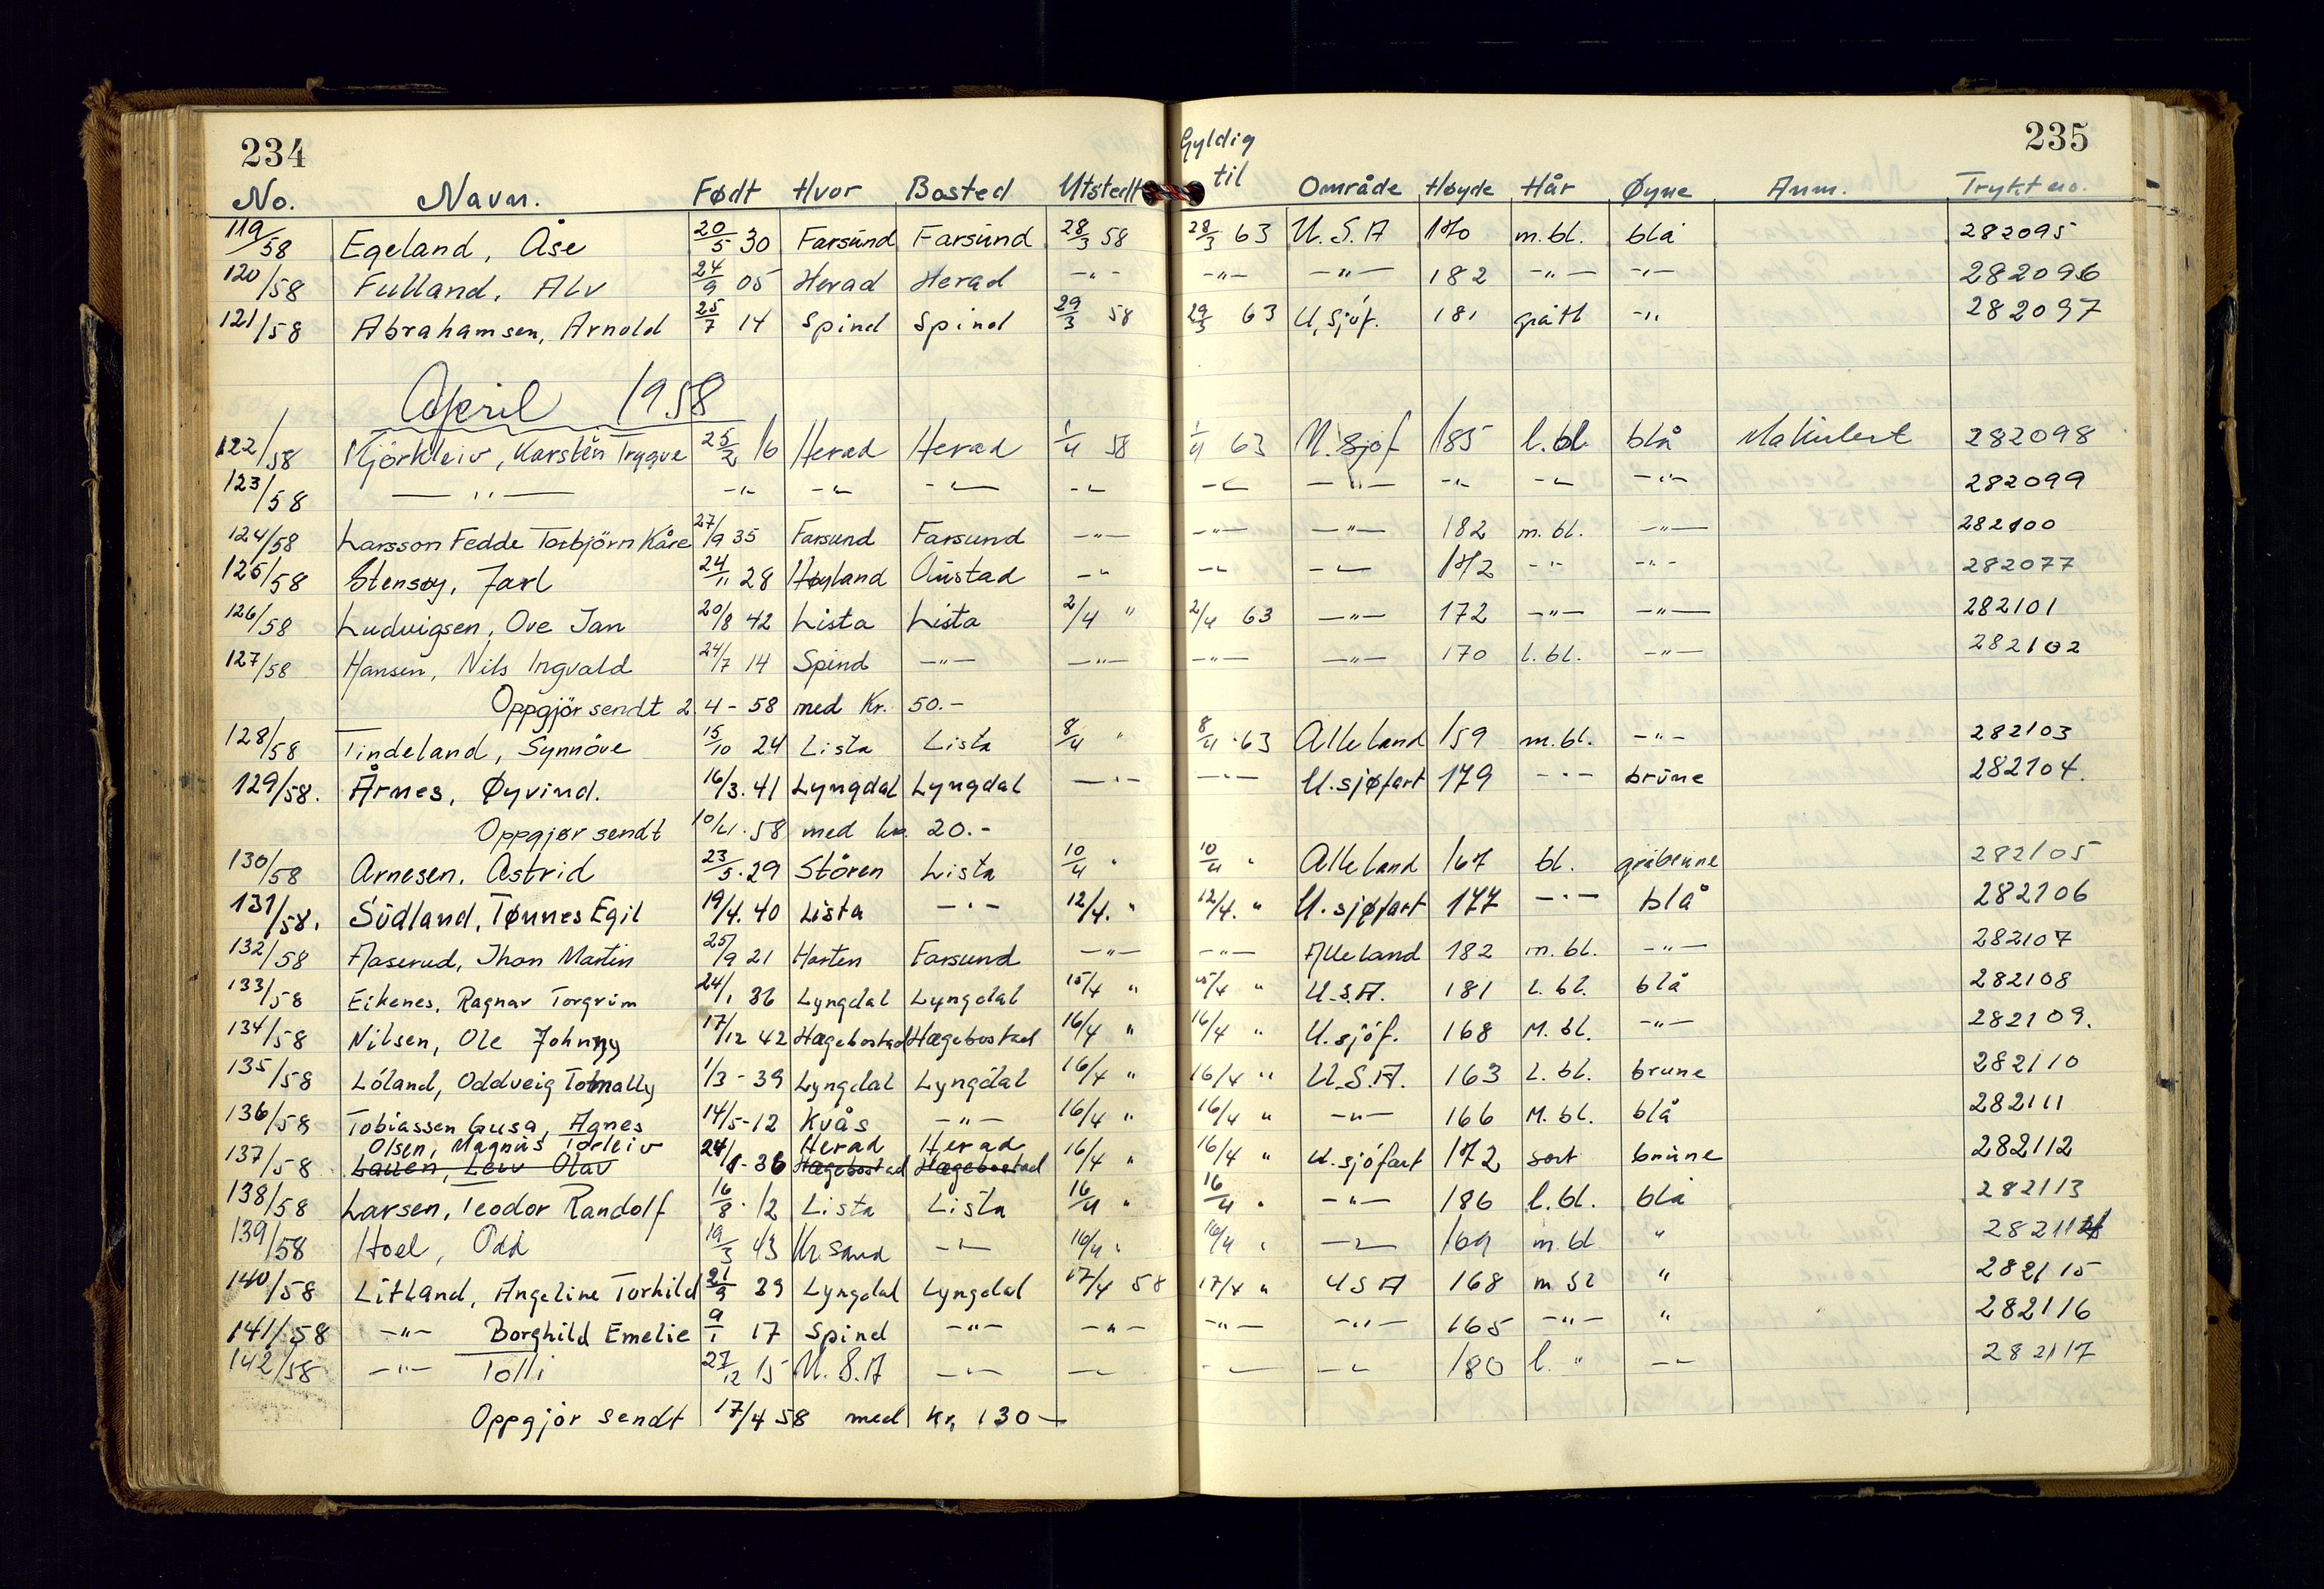 234
235
No. Navn. Født Hvor Bosted Utstedt Gyldig til Område Høyde Hår Øyne Anm. Trykt no.
119/58 Egeland, Åse 20/5 30 Farsund Farsund 28/3 58 28/3 63 U.S.A 170 m.bl. blå 282095
120/58 Fulland, Alv 24/9 05 Herad Herad -"- -"- -"- 182 -"- -"- 282096
121/58 Abrahamsen, Arnold 25/7 14 Spind Spind 29/3 58 29/3 63 U.sjøf. 181 grått -"- 282097
April 1958
122/58 Kjørkleiv, Karsten Trygve 25/2 16 Herad Herad 1/4 58 1/4 63 U.sjøf 185 l.bl. blå Makulert 282098
123/58 -"- -"- -"- -"- -"- -"- -"- -"- -"- -"- 282099
124/58 Larsson Fedde Torbjörn Kåre 27/9 35 Farsund Farsund -"- -"- -"- 182 m.bl. -"- 282100
125/58 Stensøy, Jarl 24/11 28 Høyland Austad -"- -"- -"- 172 -"- -"- 282077
126/58 Ludvigsen, Ove Jan 20/8 42 Lista Lista 2/4 " 2/4 63 -"- 172 -"- -"- 282101
127/58 Hansen, Nils Ingvald 24/7 14 Spind -"- -"- -"- -"- 170 l.bl. -"- 282102
Oppgjör sendt 2.4-58 med Kr. 50.-
128/58 Tindeland, Synnöve 15/10 24 Lista Lista 8/4 " 8/4.63 Alle land 159 m.bl. -"- 282103
129/58. Årnes, Øyvind. 16/3.41 Lyngdal Lyngdal -"- -"- U.sjøfart 179 -"- brune 282104.
Oppgjør sendt 10/4.58 med kr. 20.-
130/58 Arnesen, Astrid 23/5.29 Støren Lista 10/4 " 10/4 " Alle land 167 bl. gråbrune 282105
131/58. Südland, Tønnes Egil 19/4.40 Lista -"- 12/4. " 12/4. " U.sjøfart 177 -"- blå 282106
132/58 Aaserud, Jhon Martin 25/9 21 Horten Farsund -"- -"- Alle land 182 m.bl. -"- 282107
133/58 Eikenes, Ragnar Torgrim 24/1 36 Lyngdal Lyngdal 15/4 " 15/4 " U.S.A. 181 l.bl. blå 282108
134/58 Nilsen, Ole Johnny 17/12 42 Hægebostad Hægebostad 16/4 " 16/4 " U.sjöf. 168 M.bl. -"- 282109.
135/58 Lóland, Oddveig Tomally 1/3-39 Lyngdal Lyngdal 16/4 " 16/4 " U.S.A. 163 L.bl. brune 282110
136/58 Tobiassen Gusa, Agnes 14/5-12 Kvås -"- 16/4 " 16/4 " -"- 166 M.bl. blå 282111
Olsen, Magnus Torleiv Herad Herad
137/58 Lauen, Leiv Olav 24/8-36 Hægebostad Hægebostad 16/4 " 16/4 " U.sjöfart 172 sort brune 282112
138/58 Larsen, Teodor Randolf 16/8.12 Lista Lista 16/4 " 16/4 " -"- 186 l.bl. blå 282113
139/58 Hoel, Odd 19/3 43 Kr.sand -"- 16/4 " 16/4 " -"- 169 m.bl " 282114
140/58 Litland, Angeline Torhild 21/9 29 Lyngdal Lyngdal 17/4 58 17/4 " USA 168 m bl " 282115
141/58 -"- Borghild Emelie 9/1 17 Spind -"- -"- -"- -"- 165 -"- " 282116
142/58 -"- Tolli 27/12 15 U.S.A -"- -"- -"- -"- 180 l. " -"- 282117
Oppgjör sendt 17/4 58 med kr. 130-